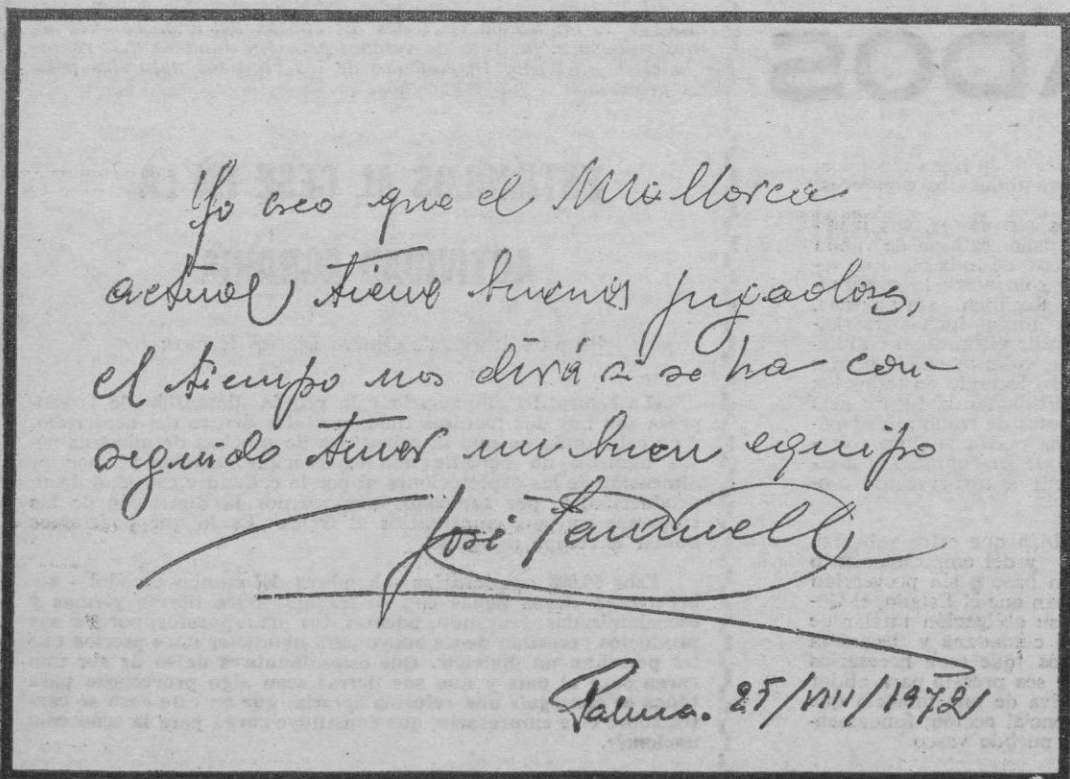 Yo creo que el Mallorca
actual, tiene buenos jugadores,
el tiempo nos dirá si se ha con-
seguido tener un buen equipo
José
Palma. 25/VIII/1972